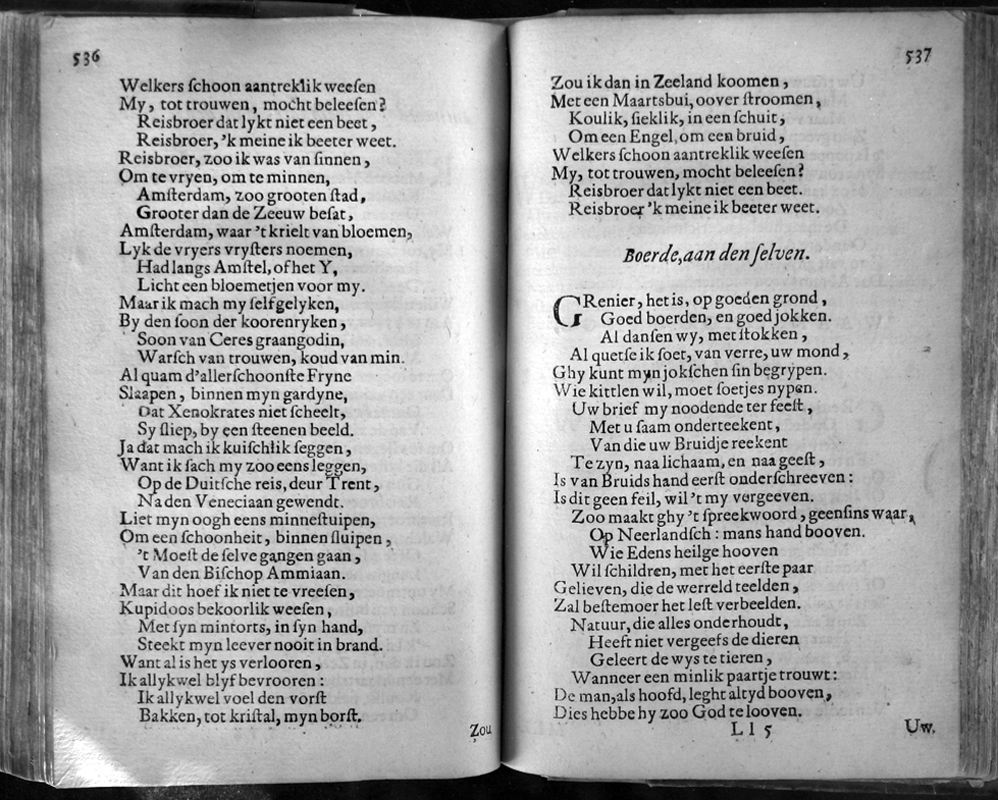 536
Welkers ſchoon aantreklik weeſen
My, tot trouwen, mocht beleeſen?
Reisbroer dat lykt niet een beet,
Reisbroer, 'k meine ik beeter weet.
Reisbroer, zoo ik was van ſinnen,
Om te vryen, om te minnen,
Amſterdam, zoo grooten ſtad,
Grooter dan de Zeeuw beſat,
Amſterdam, waar 't krielt van bloemen,
Lyk de vryers vryſters noemen,
Had langs Amſtel, of het Y,
Licht een bloemetjen voor my.
Maar ik mach my ſelf gelyken,
By den ſoon der koorenryken,
Soon van Ceres graangodin,
Warſch van trouwen, koud van min.
Al quam d'allerſchoonſte Fryne
Slaapen, binnen myn gardyne,
Dat Xenokrates niet ſcheelt,
Sy ſliep, by een ſteenen beeld.
Ja dat mach ik kuiſchlik ſeggen,
Want ik ſach my zoo eens leggen,
Op de Duitſche reis, deur Trent,
Na den Veneciaan gewendt.
Liet myn oogh eens minneſtuipen,
Om een ſchoonheit, binnen ſluipen,
't Moeſt de ſelve gangen gaan,
Van den Biſchop Ammiaan.
Maar dit hoef ik niet te vreeſen,
Kupidoos bekoorlik weeſen,
Met ſyn mintorts, in ſyn hand,
Steekt myn leever nooit in brand.
Want al is het ys verlooren,
Ik allykwel blyf bevrooren:
Ik allykwel voel den vorſt
Bakken, tot kriſtal, myn borſt.
Zou
537
Zou ik dan in Zeeland koomen,
Met een Maartsbui, oover ſtroomen,
Koulik, ſieklik, in een ſchuit,
Om een Engel, om een bruid,
Welkers ſchoon aantreklik weeſen
My, tot trouwen, mocht beleeſen?
Reisbroer dat lykt niet een beet.
Reisbroer 'k meine ik beeter weet.
Boerde, aan den ſelven.
GRenier, het is, op goeden grond,
Goed boerden, en goed jokken.
Al danſen wy, met ſtokken,
Al quetſe ik ſoet, van verre, uw mond,
Ghy kunt myn jokſchen ſin begrypen.
Wie kittlen wil, moet ſoetjes nypen.
Uw brief my noodende ter feeſt,
Met u ſaam onderteekent,
Van die uw Bruidje reekent
Te zyn, naa lichaam, en naa geeſt,
Is van Bruids hand eerſt onderſchreeven:
Is dit geen feil, wil 't my vergeeven.
Zoo maakt ghy 't ſpreekwoord, geenſins waar,
Op Neerlandſch: mans hand booven.
Wie Edens heilge hooven
Wil ſchildren, met het eerſte paar
Gelieven, die de werreld teelden,
Zal beſtemoer het leſt verbeelden.
Natuur, die alles onderhoudt,
Heeft niet vergeefs de dieren
Geleert de wys te tieren,
Wanneer een minlik paartje trouwt:
De man, als hoofd, leght altyd booven,
Dies hebbe hy zoo God te looven.
L l 5
Uw.